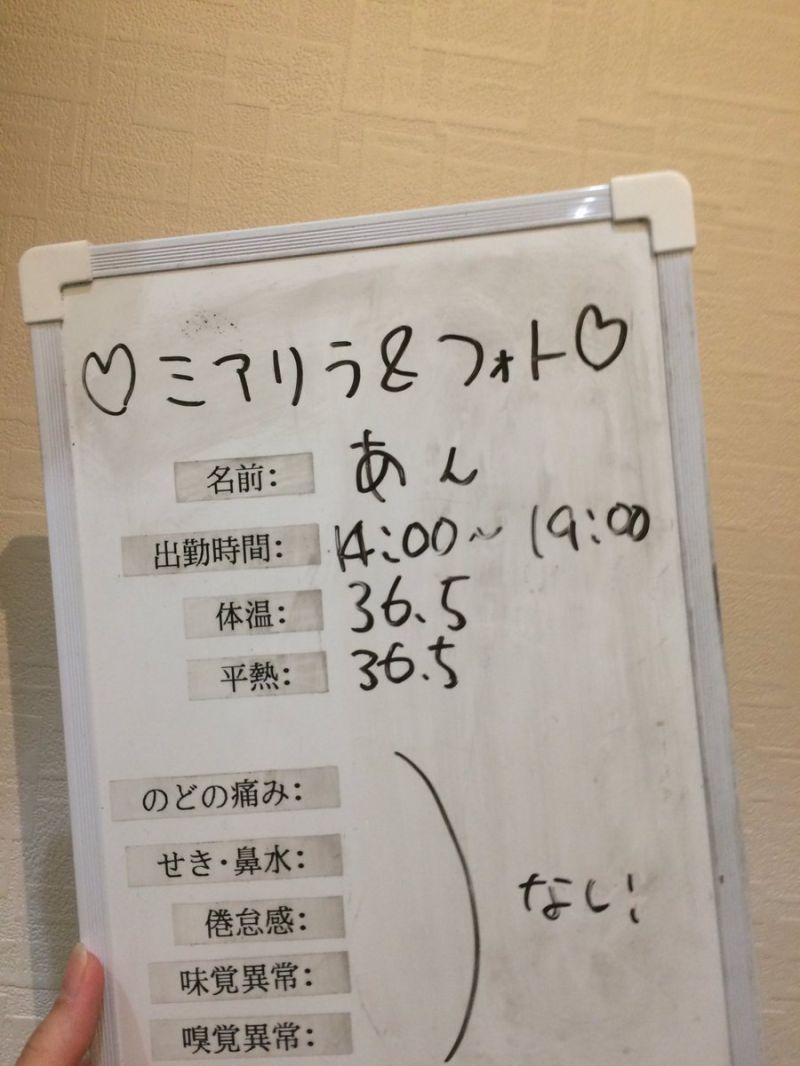 ♡ミアリラ&フォト♡
名前: あん
出勤時間: 14:00~19:00
体温: 36.5
平熱: 36.5
のどの痛み:
せき・鼻水:
倦怠感: なし!
味覚異常:
嗅覚異常: